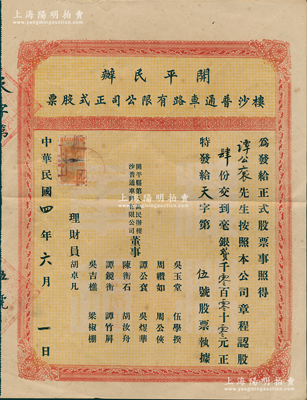 上海陽明拍賣
開平民辦
樓沙普通車路有限公司正式股票
為發給正式股票事照得
譚公衮先生按照本公司章程認股
肆份交到毫銀貳千零百零十零元正
特發給天字第伍號股票執據
開平縣第民辦樓
沙普通車路有限公司董事
吳玉堂 伍學揆
周禮如 周公俠
譚公衮 吳煜華
陳衡石 胡汝舟
譚毅衡 譚竹屏
吳吉樵 梁椒棚
理財員 胡卓凡
中華民國四年六月一日
上海陽明拍賣